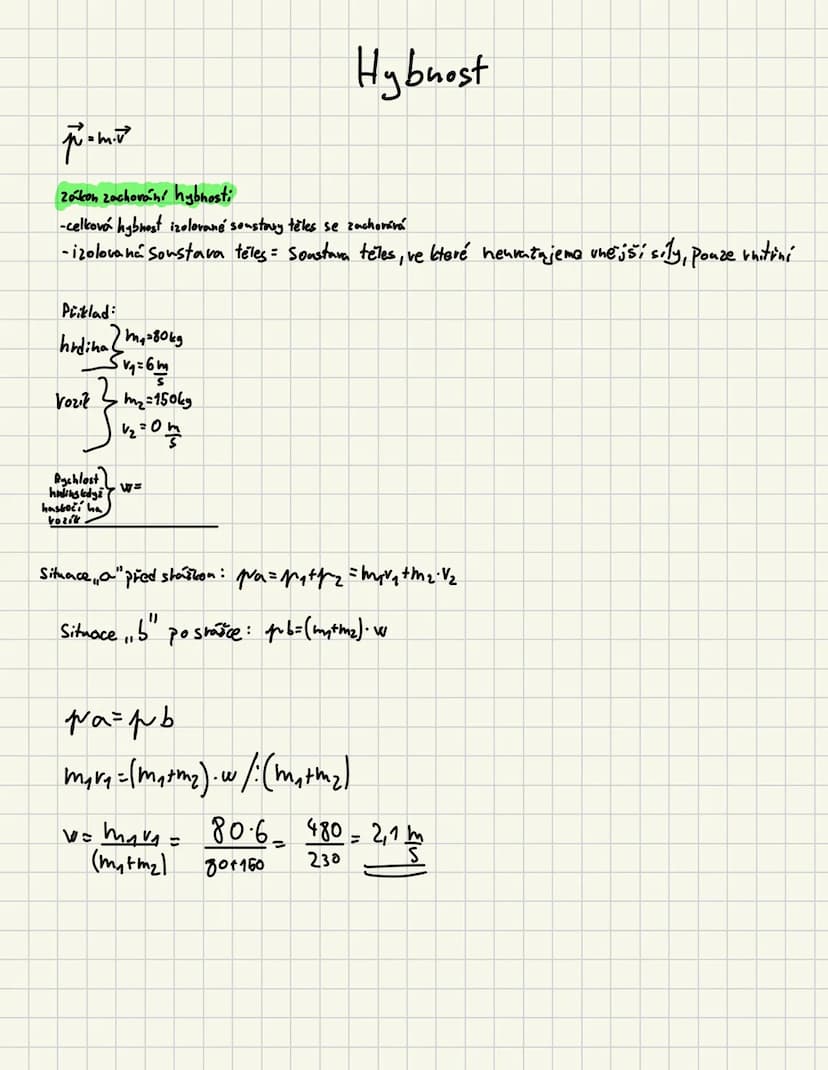 Hybnost
p⃗ = m·v⃗
zákon zachování hybnosti
-celková hybnost izolované soustavy těles se zachovává
-izolovaná soustava těles = soustava těles, ve které neuvažujeme vnější síly, pouze vnitřní
Příklad:
hrdina } m₁=80kg
v₁=6 m/s
vozík } m₂=150kg
v₂=0 m/s
Rychlost
hrdiny když
naskočí na
vozík } w=
Situace „a" před srážkou: pa=p₁+p₂=m₁v₁+m₂·v₂
Situace „b" po srážce: pb=(m₁+m₂)·w
pa=pb
m₁v₁=(m₁+m₂)·w /:(m₁+m₂)
w= m₁v₁/(m₁+m₂) = 80·6/80+150 = 480/230 = 2,1 m/s